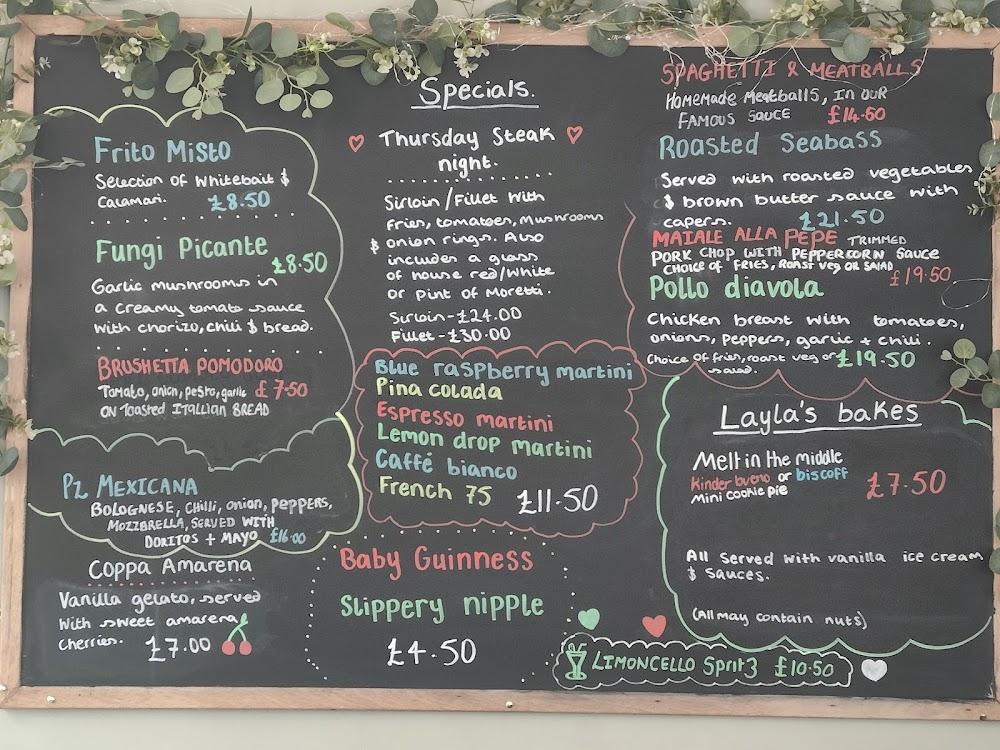 Specials.
Frito Misto
Selection of Whitebait &
Calamari. £8.50
Fungi Picante
£8.50
Garlic mushrooms in
a creamy tomato sauce
with chorizo, chili & bread.
BRUSHETTA POMODORO
Tomato, onion, pesto, garlic £7-50
ON Toasted ITALLIAN BREAD
Pz MEXICANA
BOLOGNESE, Chilli, onion, peppers,
MOZZBRELLA, SERVED WITH
DORITOS + MAYO £16.00
Coppa Amarena
Vanilla gelato, served
with sweet amarena
cherries. £7.00
Thursday Steak
night.
Sirloin/Fillet with
fries, tomatoes, mushrooms
& onion rings. Also
includes a glass
of house red/white
or pint of Moretti.
Sirloin-£24.00
Fillet-£30.00
Blue raspberry martini
Pina colada
Espresso martini
Lemon drop martini
Caffé bianco
French 75 £11.50
Baby Guinness
Slippery nipple
£4.50
SPAGHETTI & MEATBALLS
Homemade Meatballs, in our
FAMOUS SAUCE £14.60
Roasted Seabass
Served with roasted vegetables
& brown butter sauce with
capers. £21.50
MAIALE ALLA PEPE TRIMMED
PORK CHOP WITH PEPPERCORN Sauce
CHOICE of FRIES, ROAST VEG OR SALAD
£19.50
Pollo diavola
Chicken breast with tomatoes,
onions, peppers, garlic + chili.
Choice of fries, roast veg or £19.50
salad.
Layla's bakes
Melt in the middle
Kinder bueno or biscoff
Mini cookie pie £7.50
All served with vanilla ice cream
& sauces.
(All may contain nuts)
LIMONCELLO Sprit3 £10.50